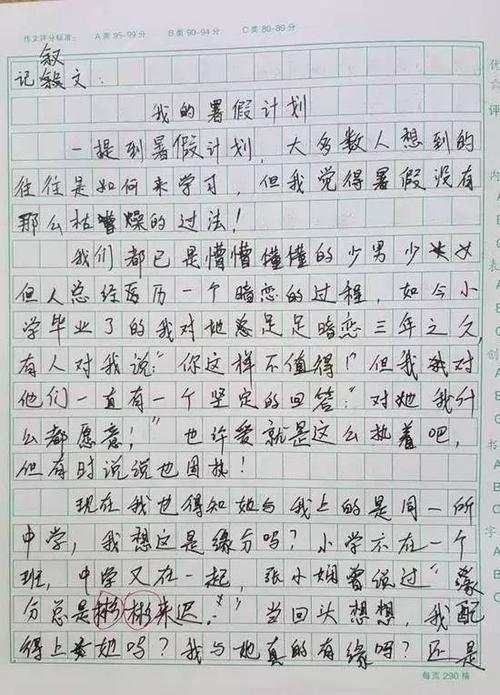 作文评分标准： A类 95-99分 B类 90-94分 C类 80-89分
叙
记叙文：
我的暑假计划
一提到暑假计划，大多数人想到的
往往是如何来学习，但我觉得暑假没有
那么枯燥的过法！
我们都已是懵懵懂懂的少男少女
但人总经历一个暗恋的过程，如今小
学毕业了的我对她足足暗恋三年之久，
有人对我说："你这样不值得！"但我对
他们一直有一个坚定的回答："对她我什
么都愿意！"也许爱就是这么执着吧，
但有时说说也固执！
现在我也得知她与我上的是同一所
中学，我想这是缘分吗？小学亦在一个
班，中学又在一起，张小娴曾说过"缘
分总是彬彬来迟。"当回头想想，我配
得上她吗？我与她真的有缘吗？还是
每页 290 格
代
评
内
A
B
C
表
A
B
C
创
A
B
C
书
A
B
C
字